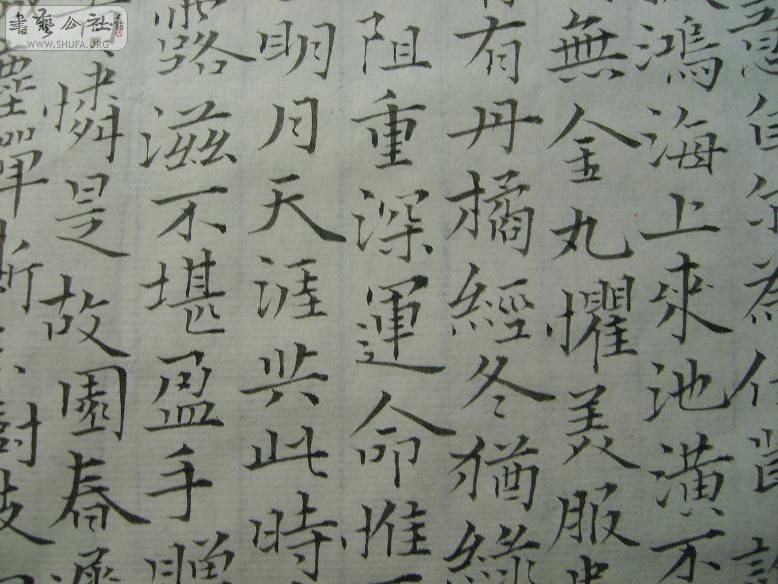 意自尔為佳
鴻海上來池潢不
無金丸懼美服患
有丹橘經冬猶綠
阻重深運命惟
明月天涯共此時
露滋不堪盈手贈
憐是故園春
單
書藝公社
WWW.SHUFA.ORG